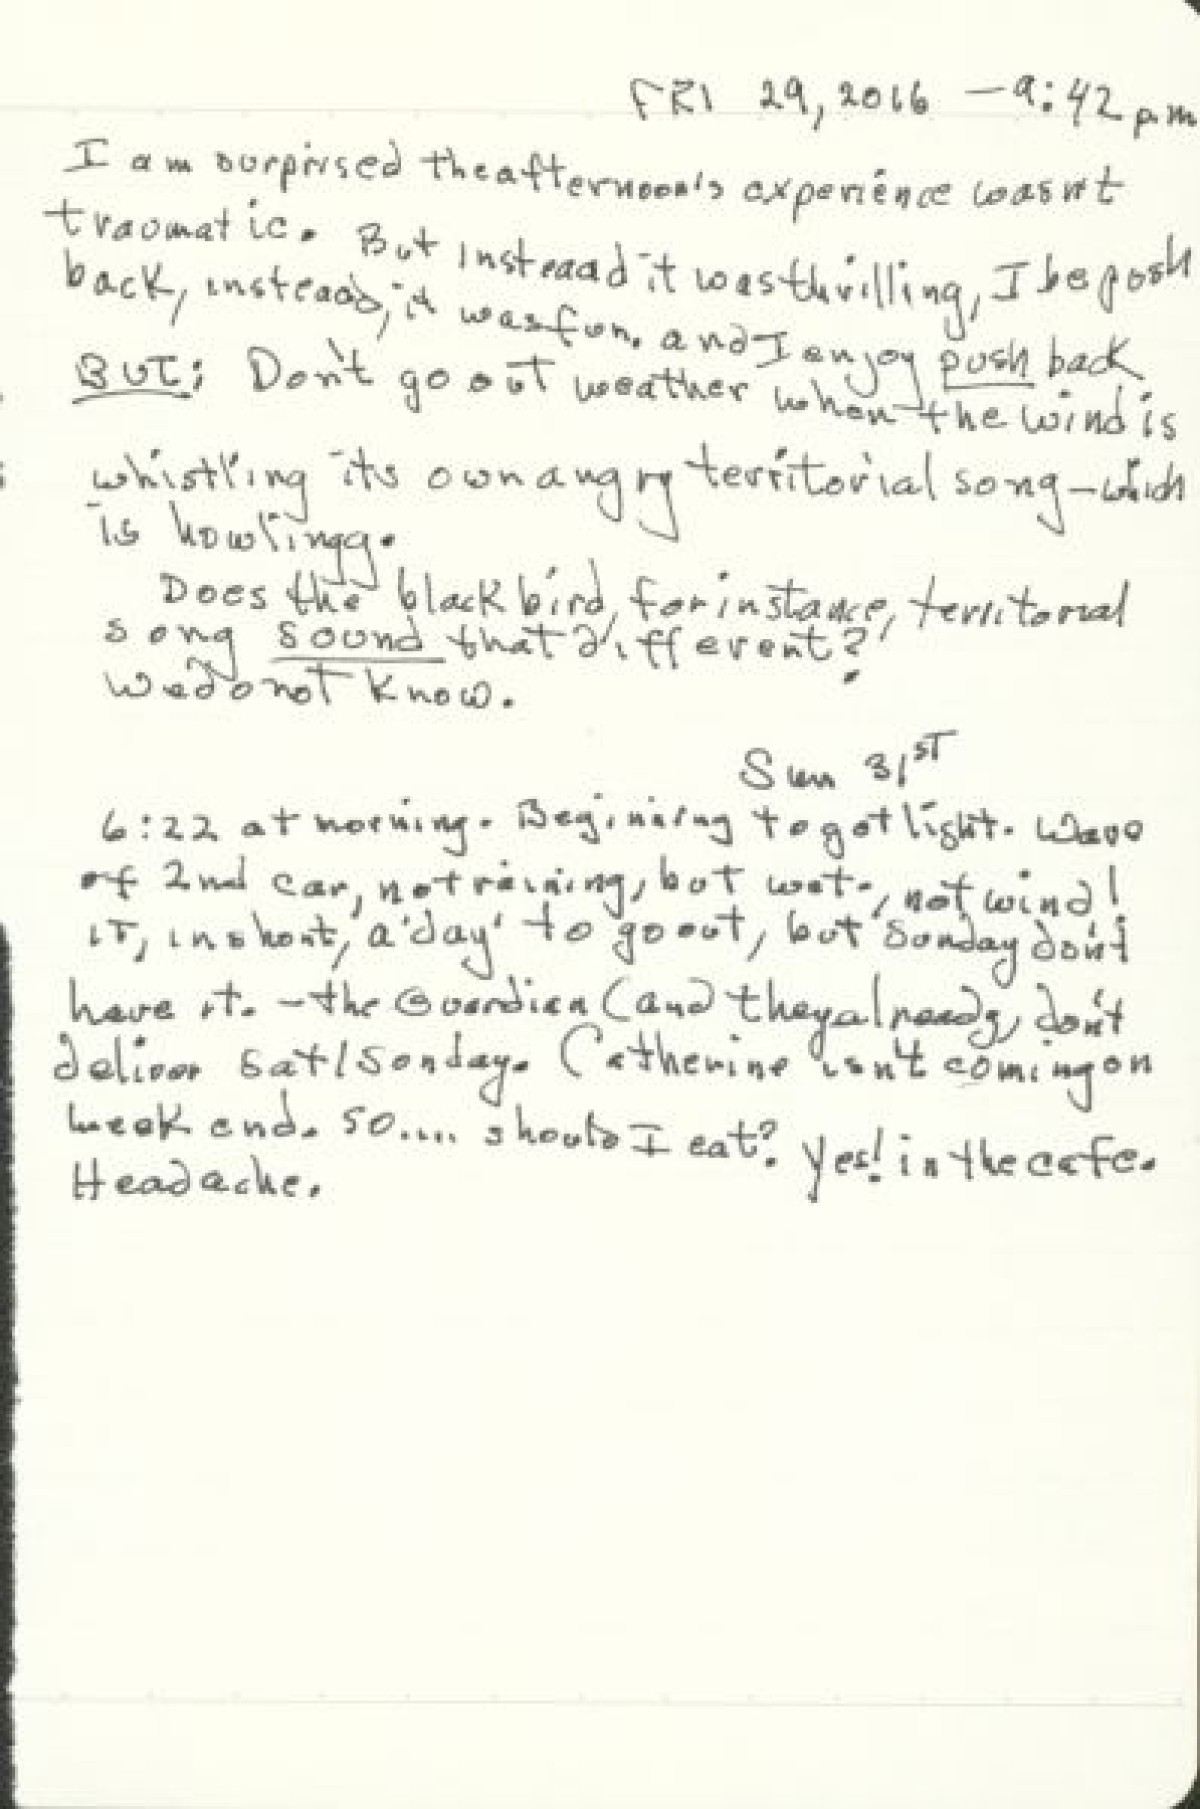 FRI 29, 2016 – 9:42 p.m
I am surprised the afternoon's experience wasn't
traumatic. But insteaad it was thrilling, I be posh
back, instead, it was fun. and I enjoy push back
BUT: Don't go out weather when the wind is
whistling its own angry territorial song – which
is howlingg.
Does the black bird, for instance, territorial
song sound that different?
We do not know.
Sun 31ST
6:22 at morning. Beginning to got light. Wave
of 2nd car, not raining, but wet, not wind!
IT, in short, a 'day' to go out, but Sunday don't
have it. – the Guardian (and they already, don't
deliver Sat/Sonday. Catherine isn't coming on
week end. SO.... should I eat? Yes! in the cafe.
Headache.